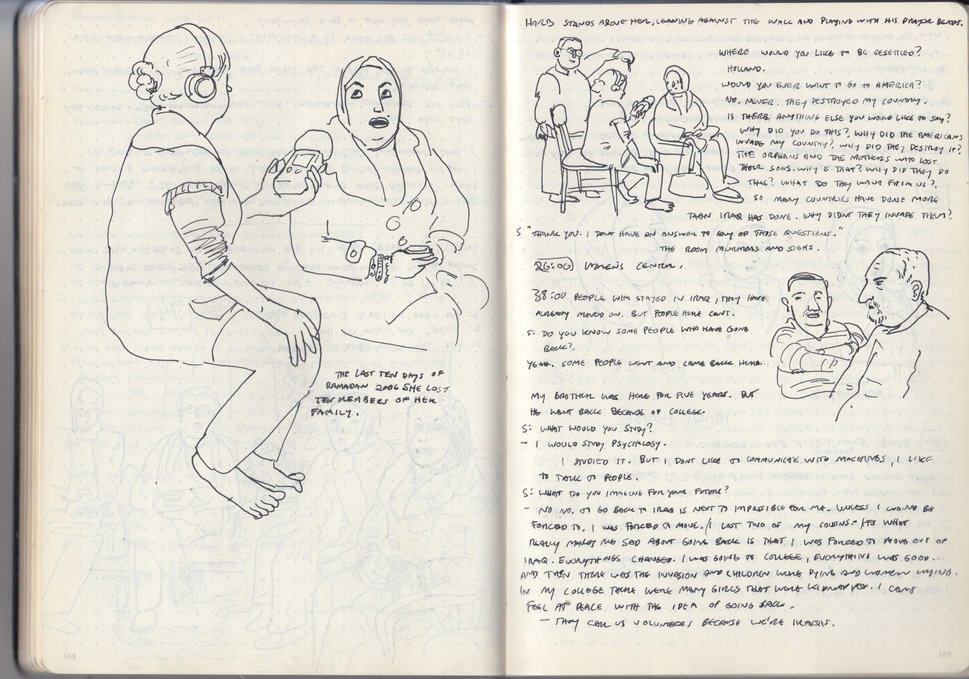 THE LAST TEN DAYS OF
RAMADAN 2006 SHE LOST
TEN MEMBERS OF HER
FAMILY.
168
STANDS ABOVE HER, LEANING AGAINST THE WALL AND PLAYING WITH HIS PRAYER BEADS.
WHERE WOULD YOU LIKE TO BE RESETTLED?
HOLLAND.
WOULD YOU EVER WANT TO GO TO AMERICA?
NO. NEVER. THEY DESTROYED MY COUNTRY.
IS THERE ANYTHING ELSE YOU WOULD LIKE TO SAY?
WHY DID YOU DO THIS? WHY DID THE AMERICANS
INVADE MY COUNTRY? WHY DID THEY DESTROY IT?
THE ORPHANS AND THE MOTHERS WHO LOST
THEIR SONS. WHY IS THAT? WHY DID THEY DO
THIS? WHAT DO THEY WANT FROM US?
SO MANY COUNTRIES HAVE DONE MORE
THEN IRAQ HAS DONE. WHY DIDNT THEY INVADE THEM?
S "THANK YOU. I DONT HAVE AN ANSWER TO ANY OF THOSE QUESTIONS."
THE ROOM MURMERS AND SIGHS.
26:00 WOMEN'S CENTER.
38:00 PEOPLE WHO STAYED IN IRAQ, THEY HAVE
ALREADY MOVED ON. BUT PEOPLE HERE CANT.
S: DO YOU KNOW SOME PEOPLE WHO HAVE GONE
BACK?
YEAH. SOME PEOPLE WENT AND CAME BACK HERE.
MY BROTHER WAS HERE FOR FIVE YEARS. BUT
HE WENT BACK BECAUSE OF COLLEGE.
S: WHAT WOULD YOU STUDY?
- I WOULD STUDY PSYCHOLOGY.
I STUDIED IT. BUT I DONT LIKE TO COMMUNICATE WITH MACHINES, I LIKE
TO TALK TO PEOPLE.
S: WHAT DO YOU IMAGINE FOR YOUR FUTURE?
- NO NO. TO GO BACK TO IRAQ IS NEXT TO IMPOSSIBLE FOR ME. UNLESS I WOULD BE
FORCED TO. I WAS FORCED TO MOVE. / I LOST TWO OF MY COUSINS. / ITS WHAT
REALLY MAKES ME SAD ABOUT GOING BACK IS THAT I WAS FORCED TO MOVE OUT OF
IRAQ. EVERYTHINGS CHANGED. I WAS GOING TO COLLEGE, EVERYTHING WAS GOOD.
AND THEN THERE WAS THE INVASION AND CHILDREN WERE DYING AND WOMEN CRYING.
IN MY COLLEGE THERE WERE MANY GIRLS THAT WERE KIDNAPPED. I CANT
FEEL AT PEACE WITH THE IDEA OF GOING BACK.
- THEY CALL US VOLUNTEERS BECAUSE WE'RE IRAQIS.
169